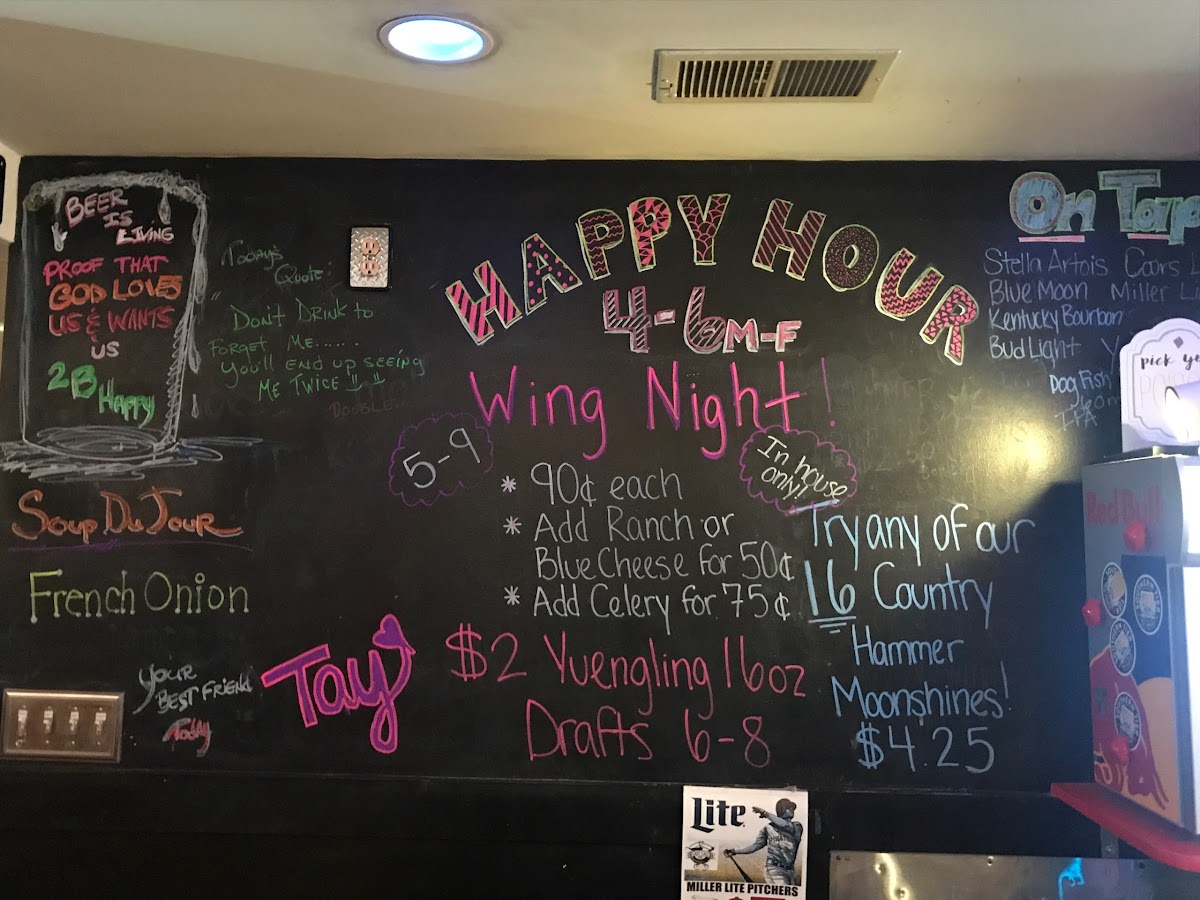 BEER
IS
LIVING
PROOF THAT
GOD LOVES
US & WANTS
US
2B
HAPPY
Today's
Quote:
"Don't Drink to
Forget Me.....
You'll end up seeing
Me Twice!!
Double...
Soup Du Jour
French Onion
Your
Best Friend
Today
Tay
HAPPY HOUR
4-6 M-F
Wing Night!
5-9
In house
only!
* 90¢ each
* Add Ranch or
Blue Cheese for 50¢
* Add Celery for 75¢
$2 Yuengling 16oz
Drafts 6-8
On Tap
Stella Artois Coors
Blue Moon Miller
Kentucky Bourbon
Bud Light
Dog Fish
IPA
Try any of our
16 Country
Hammer
Moonshines!
$4.25
pick
Red Bull
Lite
MILLER LITE PITCHERS